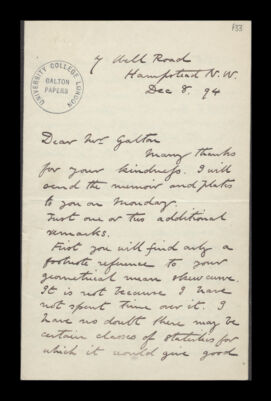 133
UNIVERSITY COLLEGE LONDON
GALTON
PAPERS
7 Well Road
Hampstead N.W.
Dec 8. 94
Dear Mr Galton
Many thanks
for your kindness. I will
send the memoir and plates
to you on Monday.
Just one or two additional
remarks.
First you will find only a
footnote reference to your
geometrical mean skew curve
It is not because I have
not spent time over it. I
have no doubt there may be
certain classes of statistics for
which it would give good